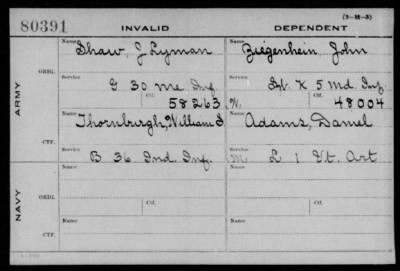 (3-H-3)
80391 INVALID DEPENDENT
Name Shaw, J Lyman Name Ziegenhein, John
ORIG.
Service Service
G 30 Me Inf K 5 Md Inf
Ctf. 58263 W. Ctf. 48004
ARMY
Name Thornburgh, William S Name Adams, Daniel
CTF.
Service Service
B 36 Ind. Inf. M. L 1 Vt. Art
Name Name
ORIG.
Service Ctf. Service Ctf.
NAVY
Name Name
CTF.
Service Service